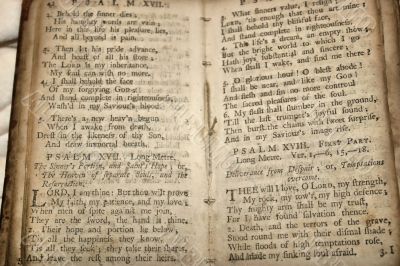 42 PSALM XVII.
2. Behold the sinner dies,
His haughty words are vain;
Here in this life his pleasure lies,
And all beyond is pain.
3. Then let his pride advance,
And boast of all his store:
The LORD is my inheritance,
My soul can wish no more.
4. I shall behold the face
Of my forgiving GOD
And stand complete in righteousness,
Wash'd in my Saviour's blood.
5. There's a new heav'n begun
When I awake from death,
Drest in the likeness of thy Son,
And draw immortal breath.
PSALM XVII. Long Metre.
The Sinner's Portion, and Saint's Hope; or,
The Heaven of separate Souls, and the
Resurrection.
LORD, I am thine: But thou wilt prove
My faith, my patience, and my love:
When men of spite against me join,
They are the sword, the hand is thine.
Their hope and portion lie below;
'Tis all the happiness they know,
'Tis all they seek; they take their shares,
And leave the rest among their heirs.
What sinners value, I resign;
LORD, 'tis enough that thou art mine:
I shall behold thy blissful face,
And stand complete in righteousness.
4. This life's a dream, an empty show;
But the bright world to which I go
Hath joys substantial and sincere;
When shall I wake, and find me there?
5. O glorious hour! O blest abode!
I shall be near, and like my GOD!
And flesh and sin no more control
The sacred pleasures of the soul.
6. My flesh shall slumber in the ground,
Till the last trumpet's joyful sound;
Then burst the chains with sweet surprise,
And in my Saviour's image rise.
PSALM XVIII. FIRST PART.
Long Metre. Ver. 1,—6, 15,—18.
Deliverance from Despair; or, Temptations
overcome.
THEE will I love, O LORD, my strength,
My rock, my tow'r, my high defence;
Thy mighty arm shall be my trust,
For I have found salvation thence.
2. Death, and the terrors of the grave,
Stood round me with their dismal shade;
While floods of high temptations rose,
And made my sinking soul afraid.